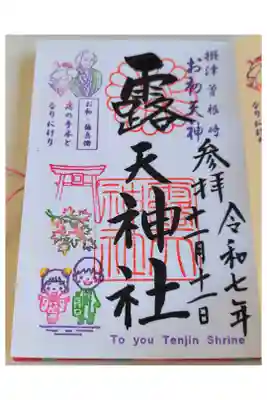 摂津 曽根崎
お初天神
令和七年
参拝 十一月十一日
露天神社
お初 徳兵衛
恋の手本と
なりにけり
To you Tenjin Shrine